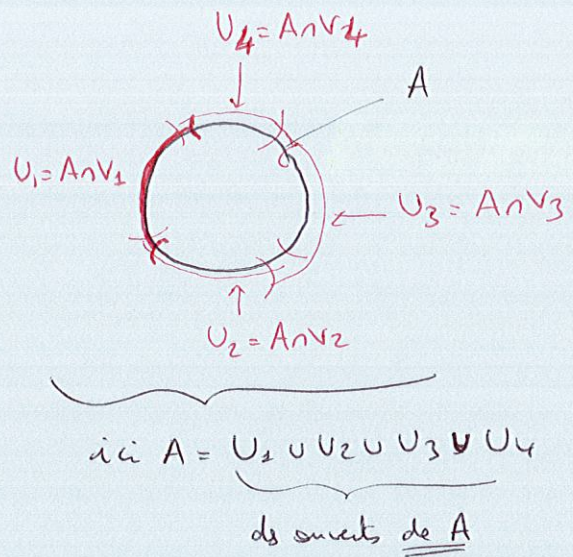 U4 = A∩V4
A
U1 = A∩V1
U3 = A∩V3
U2 = A∩V2
ici A = U1 ∪ U2 ∪ U3 ∪ U4
ds ouverts de A